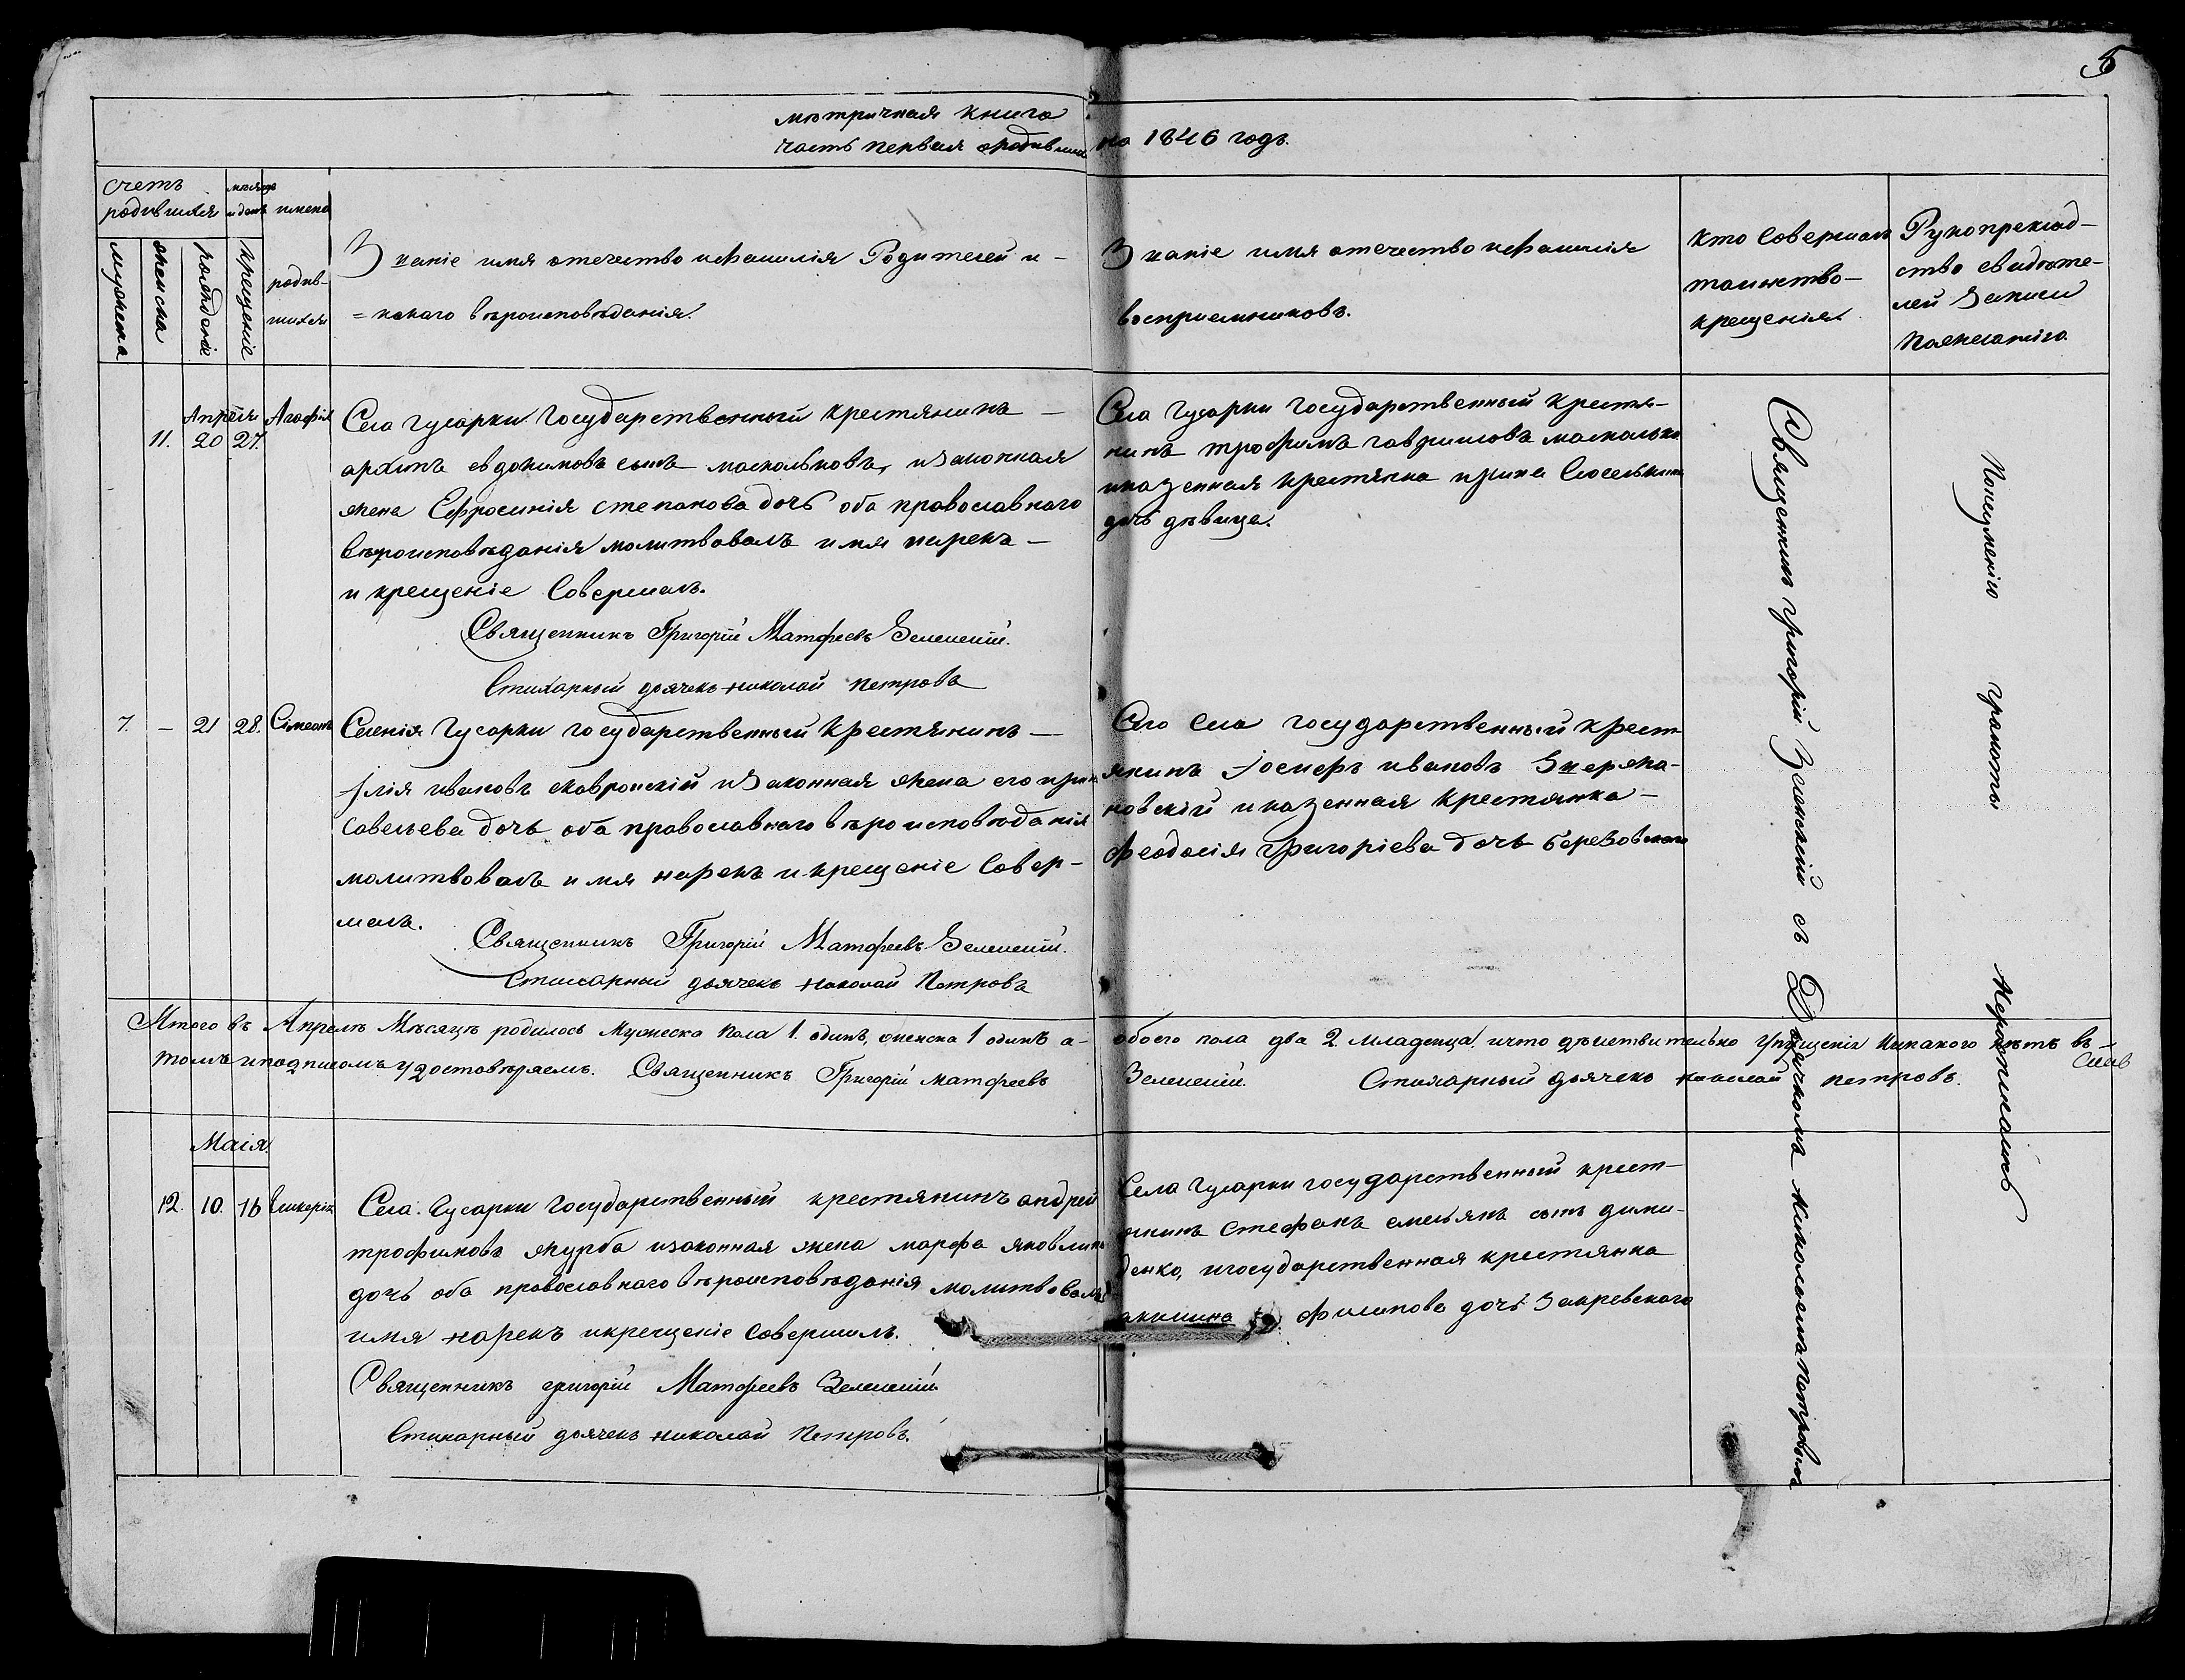 5
метричная книга
часть первая
на 1846 годъ.
счетъ
родившихся
мѣсяцъ
и день
имена
родив-
шихся
мужеска
женска
рожденіе
крещеніе
Званіе имя отечество и фамилія Родителей и-
= какого вѣроисповѣданія.
Званіе имя отечество и фамилія
восприемниковъ.
кто Совершалъ
таинство-
крещенія.
Рукоприклад-
ство свидѣте-
лей записи
По желанію
Апреля Агафія
11. 20 27.
Села Гусарки Государственный крестянинъ —
архипъ евдокимовъ сынъ москольковъ, и законная
жена Ефросинія степанова дочь оба православнаго
вѣроисповѣданія молитвовалъ имя нарекъ —
и крещеніе Совершалъ.
Священникъ Григорій Матфеевъ Зеленскій.
Стихарный дьячекъ николай петровъ
Села Гусарки Государственный крестя-
нинъ трофимъ гавриловъ
и казенная крестянка ирина
дочь дѣвица.
7. — 21 28. Сімеонъ
Селенія Гусарки государственный крестянинъ —
Ілія ивановъ скавронскій и законная жена его
Савельева дочь оба православнаго вѣроисповѣданія
молитвовалъ имя нарекъ и крещеніе Совер-
шалъ.
Священникъ Григорій Матфеевъ Зеленскій.
Стихарный дьячекъ николай Петровъ
Сего Села государственный крест
янинъ Іосифъ ивановъ
новскій и казенная крестянка —
феодосія григоріева дочь березовскаго
Итого въ Апрелѣ Мѣсяцѣ родилось Мужеска пола 1. одинъ, женска 1 одинъ а-
обоего пола два 2 младенца. и что дѣиствително упущенія никакого нѣтъ въ-
томъ и подписомъ удостовѣряемъ. Священникъ Григорій матфеевъ
Зеленскій. Стихарный дьячекъ николай петровъ.
Маія.
12. 10. 16 Гликерія
Села Гусарки Государственный крестянинъ андрей
трофимовъ журба и законная жена марфа
дочь оба православнаго вѣроисповѣданія молитвовалъ
имя нарекъ и крещеніе Совершилъ.
Священникъ григорій Матфеевъ Зеленскій.
Стихарный дьячекъ николай Петровъ.
Села Гусарки государственный крест-
янинъ Стефанъ емельянъ сынъ дими-
денко, и государственная крестянка
акилина филипова дочь Закревскаго
Священникъ григорій Зеленскій съ Дьячкомъ Николаемъ Петровымъ
По неуменію грамоты Неропписались